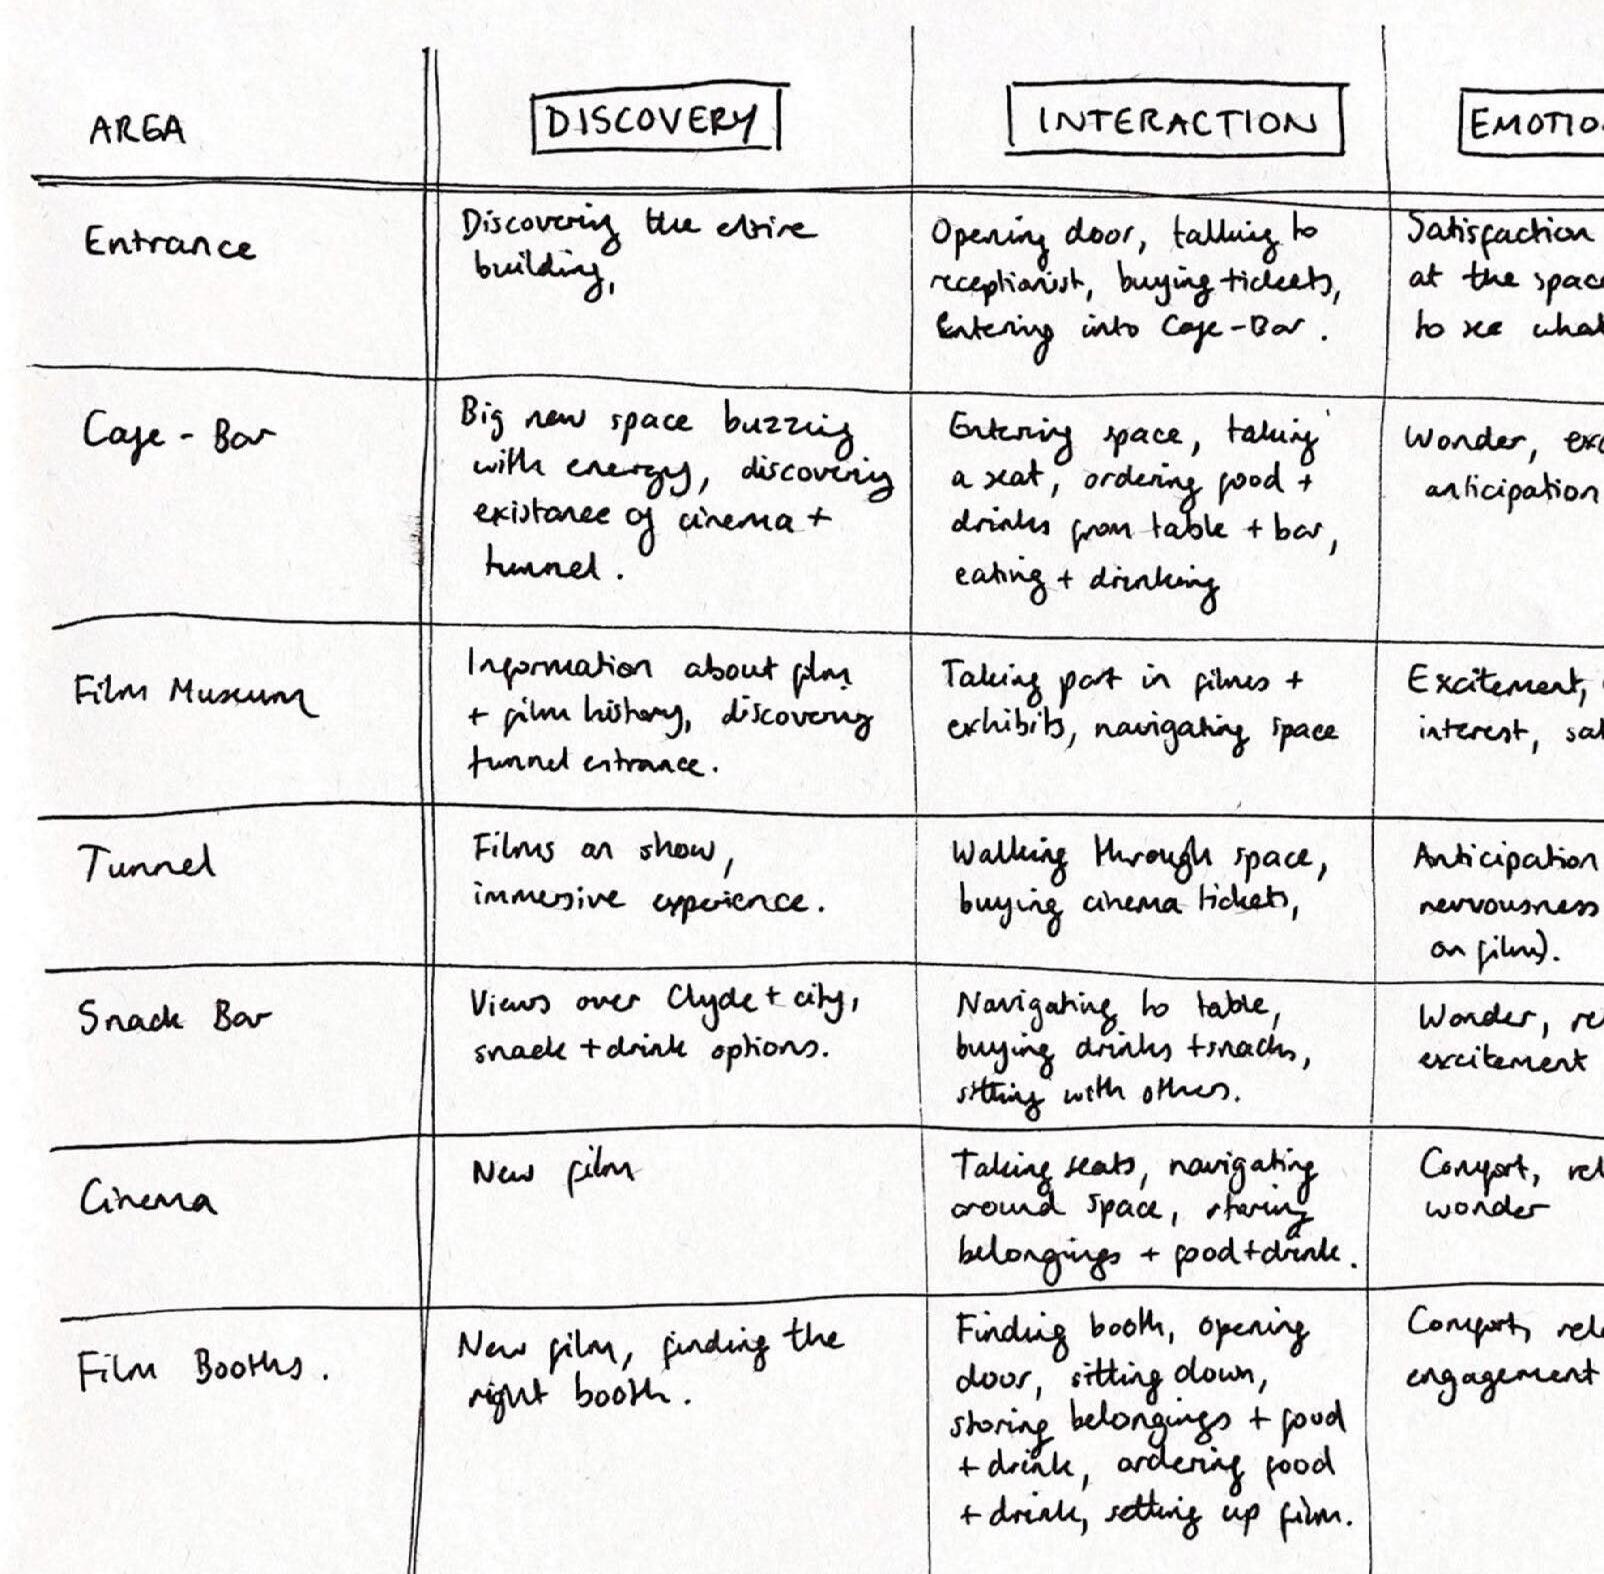 AREA
DISCOVERY
INTERACTION
EMOTIO
Entrance
Discovering the entire
building,
Opening door, talking to
receptionist, buying tickets,
Entering into Cafe-Bar.
Satisfaction
at the space
to see what
Cafe - Bar
Big new space buzzing
with energy, discovering
existance of cinema +
tunnel.
Entering space, taking
a seat, ordering food +
drinks from table + bar,
eating + drinking
Wonder, exc
anticipation
Film Museum
Information about film
+ film history, discovering
tunnel entrance.
Taking part in films +
exhibits, navigating space
Excitement,
interest, sat
Tunnel
Films on show,
immersive experience.
Walking through space,
buying cinema tickets,
Anticipation
nervousness
on film).
Snack Bar
Views over Clyde + city,
snack + drink options.
Navigating to table,
buying drinks + snacks,
sitting with others.
Wonder, re
excitement
Cinema
New film
Taking seats, navigating
around space, storing
belongings + food + drink.
Comfort, rel
wonder
Film Booths.
New film, finding the
right booth.
Finding booth, opening
door, sitting down,
storing belongings + food
+ drink, ordering food
+ drink, setting up film.
Comfort, rel
engagement